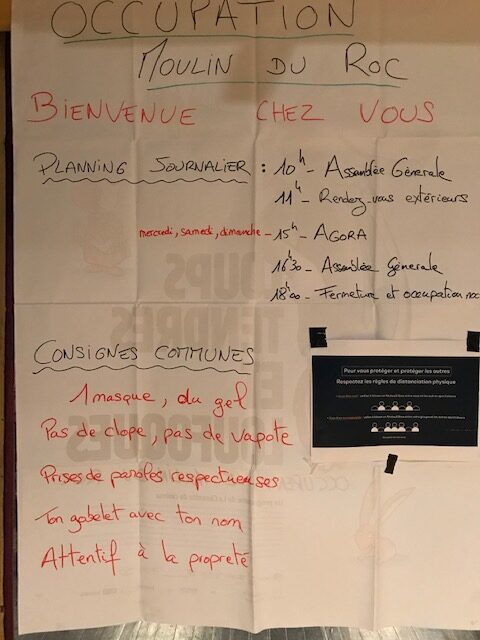 OCCUPATION
MOULIN DU ROC
BIENVENUE CHEZ VOUS
PLANNING JOURNALIER : 10h - Assemblée Génerale
11h - Rendez-vous extérieurs
mercredi, samedi, dimanche - 15h - AGORA
16h30 - Assemblée Génerale
18h00 - Fermeture et occupation noc
CONSIGNES COMMUNES
Pour vous protéger et protéger les autres
Respectez les règles de distanciation physique
1 masque, du gel
Pas de clope, pas de vapote
Prises de paroles respectueuses
Ton gobelet avec ton nom
Attentif à la propreté
LOUPS
TENDRES
ET
LOUFOQUES